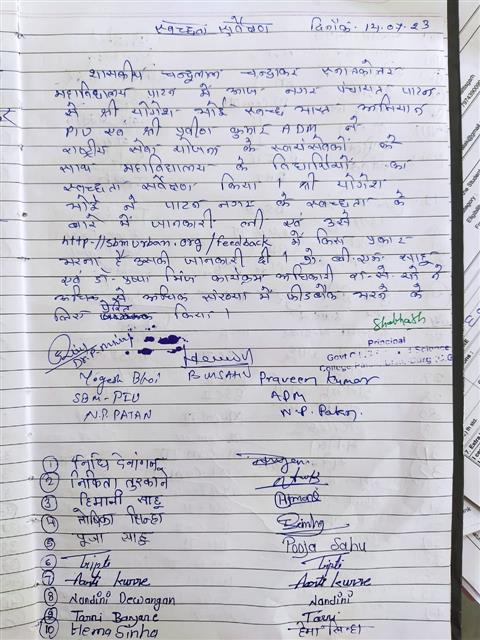 स्वच्छता सर्वेक्षण दिनांक 14.07.23
शासकीय चन्दूलाल चन्द्राकर स्नातकोत्तर
महाविद्यालय पाटन में आज नगर पंचायत पाटन
से श्री योगेश भोई स्वच्छ भारत अभियान
PIU एवं श्री प्रवीण कुमार ADM ने
राष्ट्रीय सेवा योजना के स्वयंसेवकों के
साथ महाविद्यालय के विद्यार्थियों का
स्वच्छता सर्वेक्षण किया। श्री योगेश
भोई ने पाटन नगर के स्वच्छता के
बारे में जानकारी ली एवं उसे
http-//sbmurban.org/feedback में किस प्रकार
भरना है उसकी जानकारी दी। डॉ. बी. एम. साहू
एवं डॉ. पुष्पा मिंज कार्यक्रम अधिकारी रा. से. यो. ने
अधिक से अधिक संख्या में फीडबैक भरने के
लिए प्रेरित किया।
Shobhash
Principal
Science
Yogesh Bhoi B.M.SAHU Praveen Kumar
SBM-PIU ADM
N.P. PATAN N.P. Patan
① निधि देवांगन
② निकिता
③ हिमानी साहू Himani
④ सिन्हा Sinha
⑤ पूजा साहू Pooja Sahu
⑥ Tripti Tripti
⑦ Aarti kurre Aarti kurre
⑧ Nandini Dewangan Nandini
⑨ Tanni Banjare Tanni
⑩ Hema Sinha हेमा सिन्हा